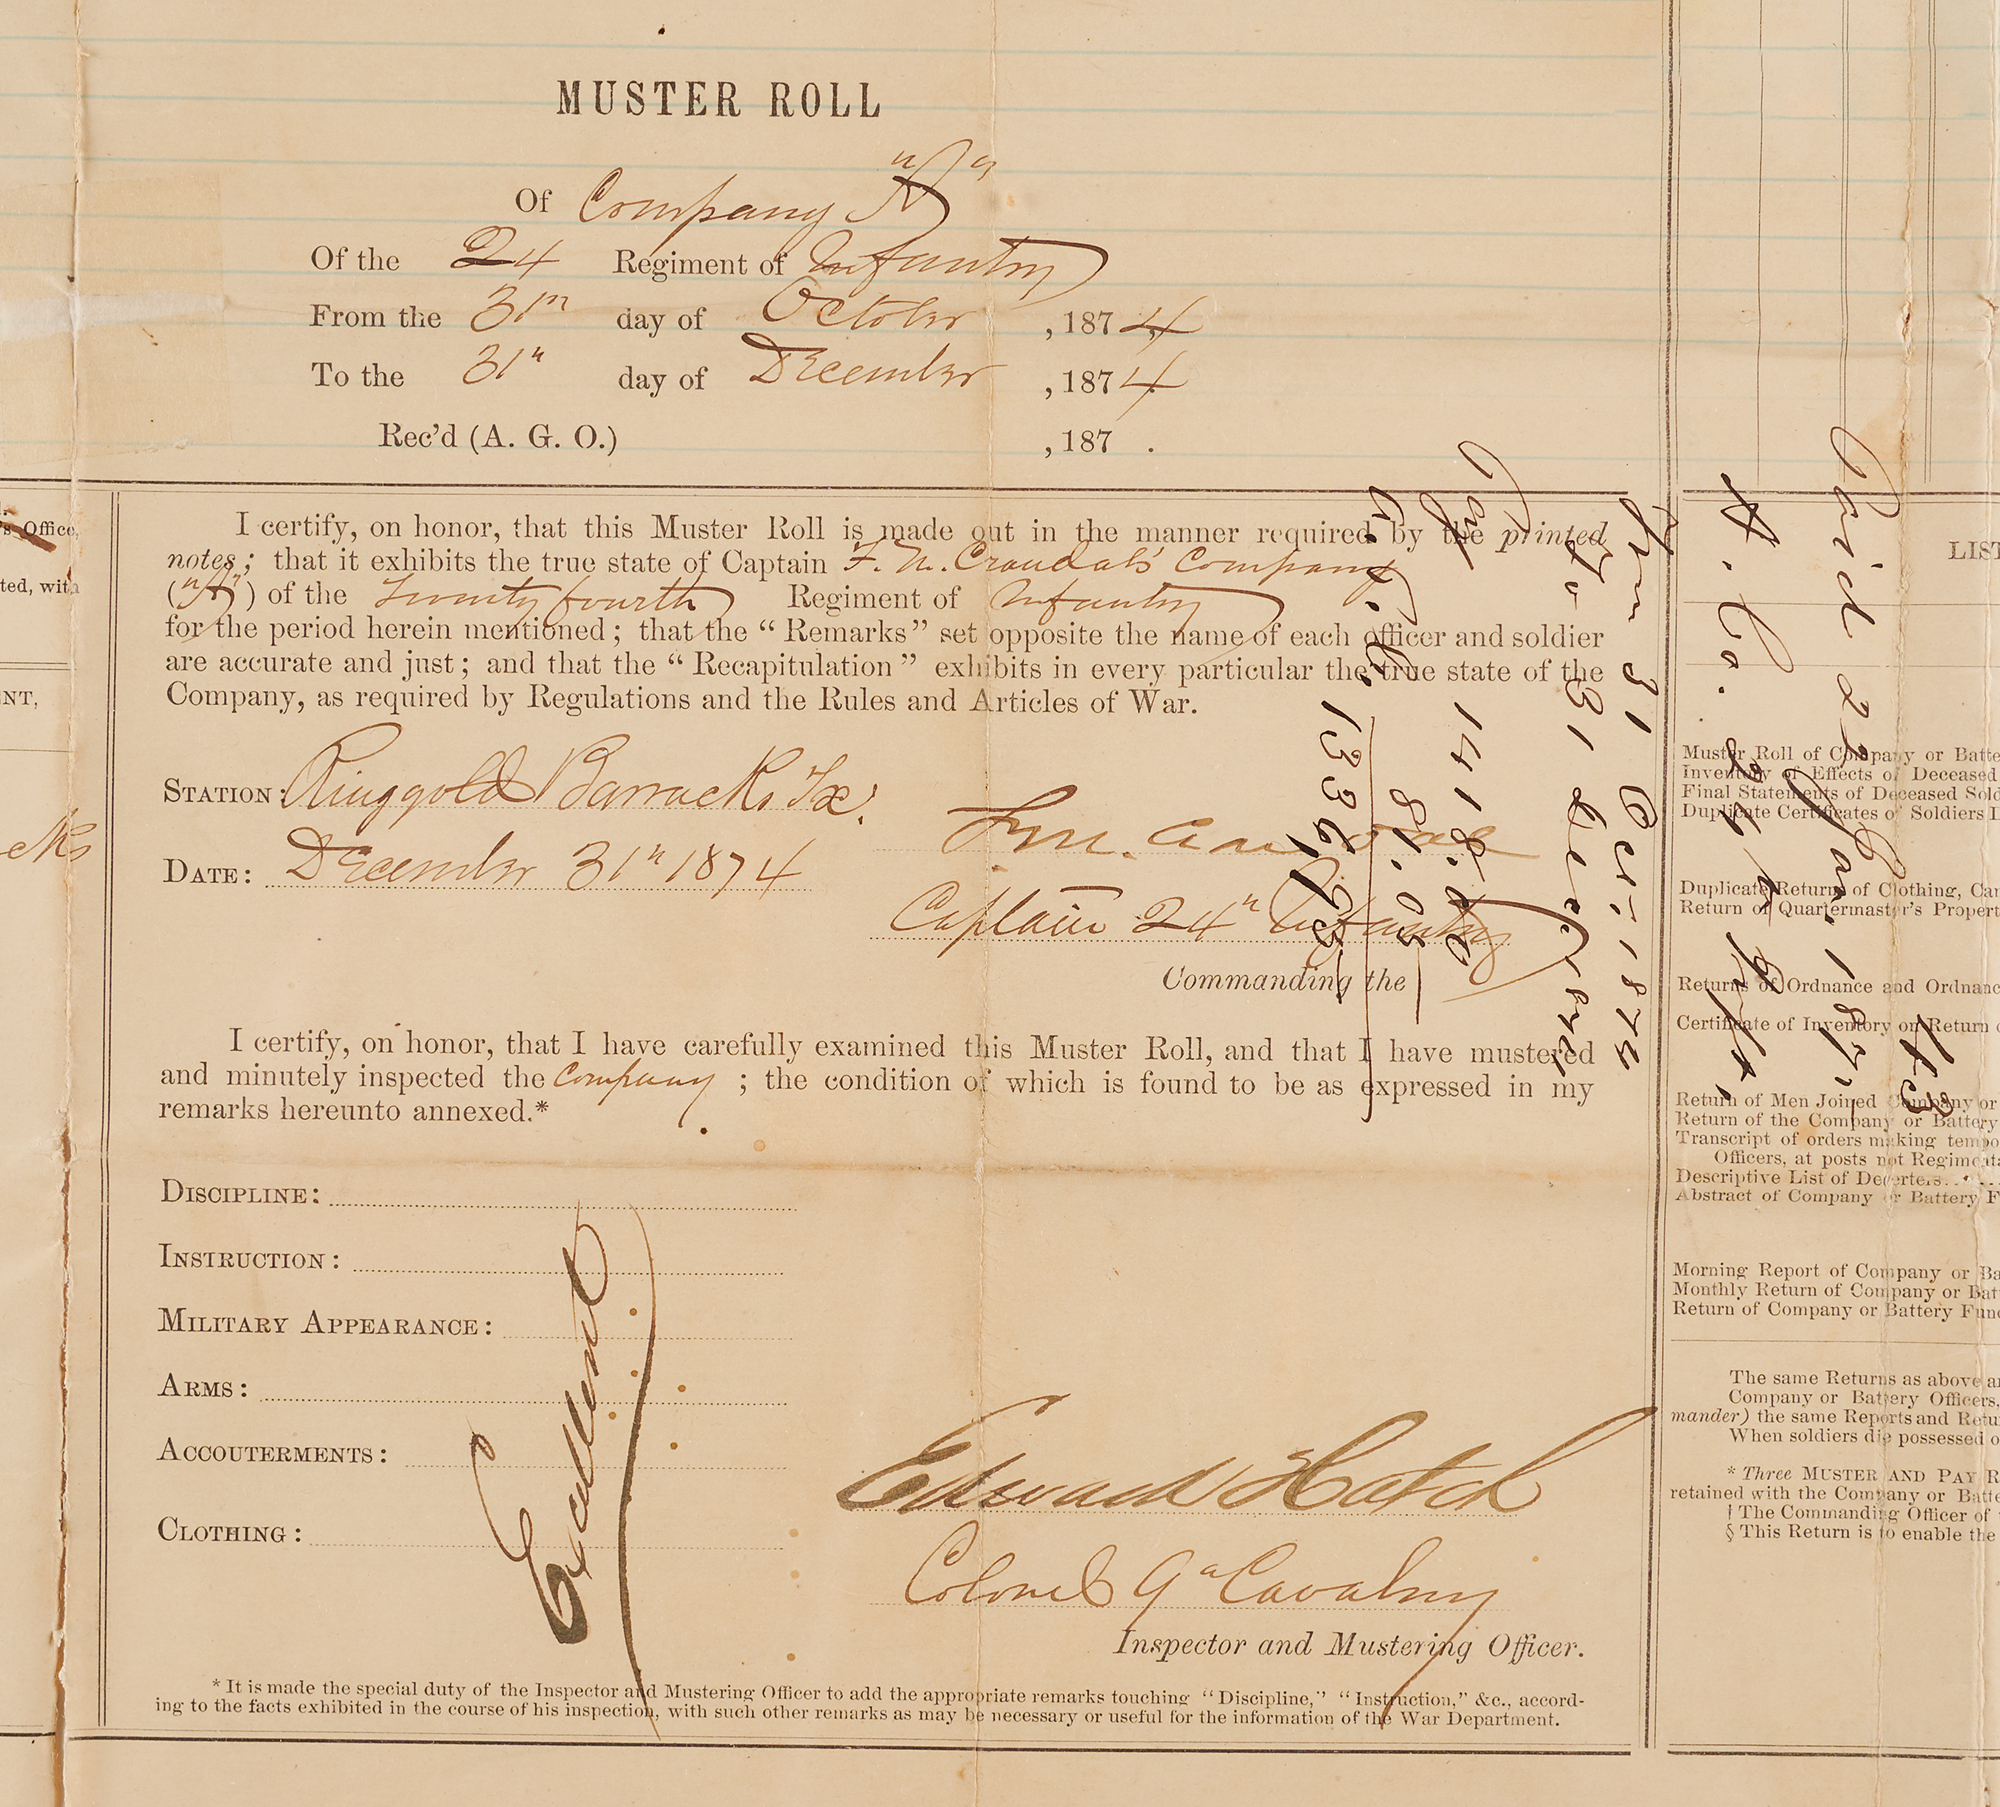 MUSTER ROLL
Of Company "A"
Of the 24 Regiment of Infantry
From the 31" day of October , 1874
To the 31" day of December , 1874
Rec'd (A. G. O.) , 187 .
I certify, on honor, that this Muster Roll is made out in the manner required by the printed
notes; that it exhibits the true state of Captain F. M. Crandal's Company
("A") of the Twenty fourth Regiment of Infantry
for the period herein mentioned; that the “ Remarks ” set opposite the name of each officer and soldier
are accurate and just; and that the “ Recapitulation ” exhibits in every particular the true state of the
Company, as required by Regulations and the Rules and Articles of War.
STATION: Ringgold Barracks Tx.
DATE: December 31" 1874
F. M. Crandal
Captain 24" Infantry
Commanding the
I certify, on honor, that I have carefully examined this Muster Roll, and that I have mustered
and minutely inspected the Company ; the condition of which is found to be as expressed in my
remarks hereunto annexed.*
DISCIPLINE:
INSTRUCTION:
MILITARY APPEARANCE:
ARMS:
ACCOUTERMENTS:
CLOTHING:
Excellent
Edward Hatch
Colonel 9" Cavalry
Inspector and Mustering Officer.
* It is made the special duty of the Inspector and Mustering Officer to add the appropriate remarks touching “Discipline,” “Instruction,” &c., accord-
ing to the facts exhibited in the course of his inspection, with such other remarks as may be necessary or useful for the information of the War Department.
From 31 Oct. 1874
To 31 Dec. 1874
Pay 1418.
81.03
1336.93
Paid 22 Jan. 187
43
A. Co. 24 Inft.
's Office,
ted, with
NT,
cks
LIST
Muster Roll of Company or Batte
Inventory of Effects of Deceased
Final Statements of Deceased Sold
Duplicate Certificates of Soldiers I
Duplicate Return of Clothing, Cam
Return of Quartermaster's Propert
Returns of Ordnance and Ordnanc
Certificate of Inventory on Return o
Return of Men Joined Company or
Return of the Company or Battery
Transcript of orders making tempo
Officers, at posts not Regimenta
Descriptive List of Deserters....
Abstract of Company or Battery F
Morning Report of Company or Ba
Monthly Return of Company or Bat
Return of Company or Battery Fund
The same Returns as above a
Company or Battery Officers,
mander) the same Reports and Retu
When soldiers die possessed o
* Three MUSTER AND PAY R
retained with the Company or Batte
† The Commanding Officer of
§ This Return is to enable the